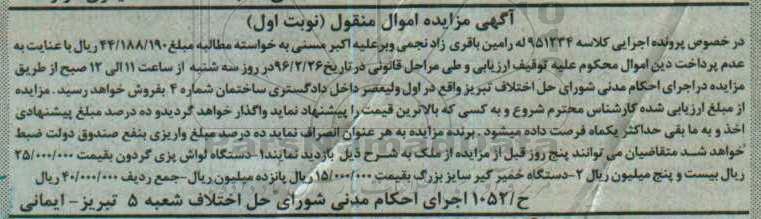 آگهی مزایده اموال منقول (نوبت اول)
در خصوص پرونده اجرایی کلاسه ۹۵۱۲۳۴ له رامین باقری زاد نجمی وبرعلیه اکبر مسنی به خواسته مطالبه مبلغ ۴۴/۱۸۸/۱۹۰ ریال با عنایت به
عدم پرداخت دین اموال محکوم علیه توقیف ارزیابی و طی مراحل قانونی در تاریخ ۹۶/۲/۲۶ در روز سه شنبه از ساعت ۱۱ الی ۱۲ صبح از طریق
مزایده دراجرای احکام مدنی شورای حل اختلاف تبریز واقع در اول ولیعصر داخل دادگستری ساختمان شماره ۴ بفروش خواهد رسید. مزایده
از مبلغ ارزیابی شده کارشناس محترم شروع و به کسی که بالاترین قیمت را پیشنهاد نماید واگذار خواهد گردیدو ده درصد مبلغ پیشنهادی
اخذ و به ما بقی حداکثر یکماه فرصت داده میشود . برنده مزایده به هر عنوان انصراف نماید ده درصد مبلغ واریزی بنفع صندوق دولت ضبط
خواهد شد متقاضیان می توانند پنج روز قبل از مزایده از ملک به شرح ذیل بازدید نمایند۱-دستگاه لواش پزی گردون بقیمت ۲۵/۰۰۰/۰۰۰
ریال بیست و پنج میلیون ریال ۲-دستگاه خمیر گیر سایز بزرگ بقیمت ۱۵/۰۰۰/۰۰۰ریال پانزده میلیون ریال-جمع ردیف ۴۰/۰۰۰/۰۰۰ ریال
ح/۱۰۵۲ اجرای احکام مدنی شورای حل اختلاف شعبه ۵ تبریز- ایمانی